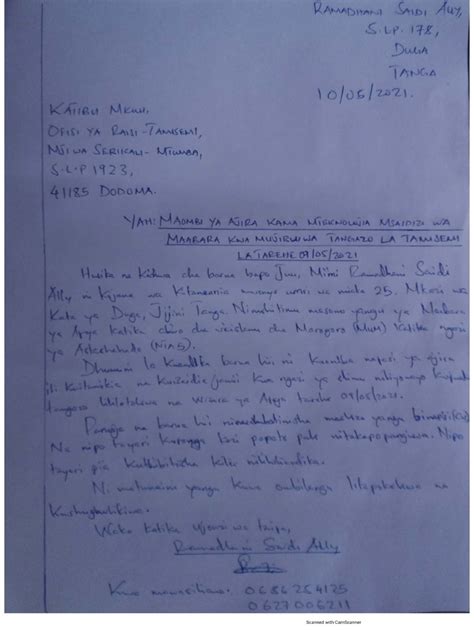 RAMADHANI SAIDI ALLY,
S.L.P. 178,
DUGA
TANGA
10/05/2021.
KATIBU MKUU,
OFISI YA RAISI-TAMISEMI,
MJI WA SERIKALI- MTUMBA,
S.L.P 1923,
41185 DODOMA.
YAH: MAOMBI YA AJIRA KAMA MTEKNOLOJIA MSAIDIZI WA
MAABARA KWA MUJIBU WA TANGAZO LA TAMISEMI
LA TAREHE 09/05/2021
Husika na kichwa cha barua hapo Juu, Mimi Ramadhani Saidi
Ally ni Kijana wa Kitanzania mwenye umri wa miaka 25. Mkazi wa
Kata ya Duga, Jijini Tanga. Nimehitimu masomo yangu ya Maabara
ya Afya Katika chuo cha waislamu cha Morogoro (MUM) Katika ngazi
ya (NTA5).
Dhumuni la Kuandika barua hii, ni Kuomba nafasi ya ajira
ili Kuitumikia na Kuisaidia jamii Kwa ngazi ya elimu niliyonayo Kupitia
tangazo lililotolewa na Wizara ya Afya tarehe 09/05/2021.
Pamoja na barua hii nimeambatanisha maelezo yangu binafsi(CV)
Na nipo tayari Kufanya Kazi popote pale nitakapopangiwa. Nipo
tayari pia Kuthibitisha Kile
Ni matumaini yangu Kuwa ombi langu litapokelewa na
Kushughulikiwa.
Wako Katika Ujenzi wa taifa,
Ramadhani Saidi Ally
Kwa mawasiliano: 0686254125
0627006211
Scanned with CamScanner